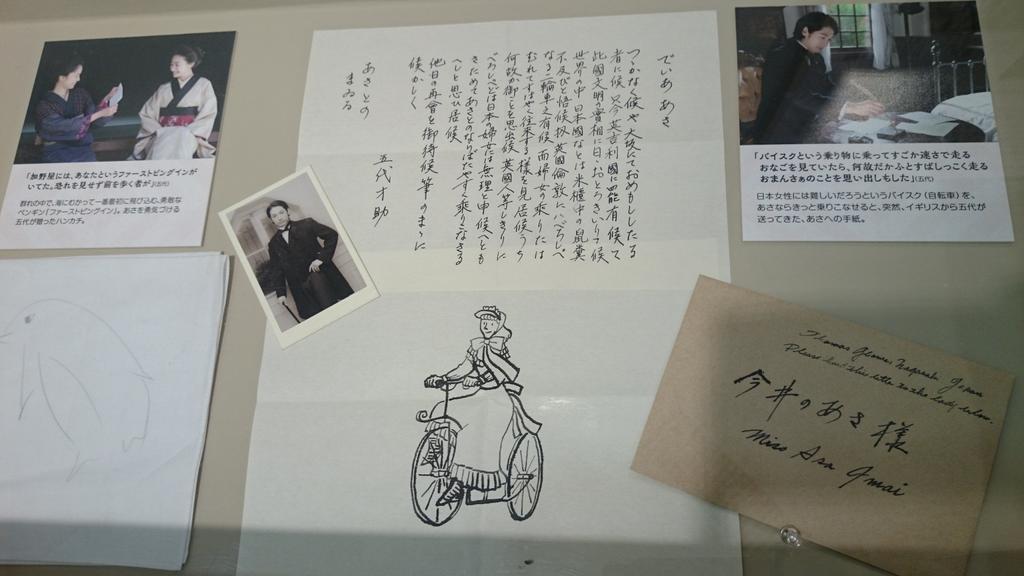 「加野屋には、あなたというファーストペングインが
いてた。恐れを見せず前を歩く者が」(五代)
群れの中で、海にむかって一番最初に飛び込む、勇敢な
ペンギン「ファーストペングイン」。あさを勇気づける
五代が贈ったハンカチ。
でぃあ あさ
つゝがなく候や 大坂にておめもじしたる
者に候 只今 英吉利國に罷有候て
此國文明の實相に日々おとろきいりて候
世界の中 日本國などは米櫃中の鼠糞
不及と悟候扨 英國倫敦にハべろしぺ
なる二輪車之有候 而婦女の乗りたは
むれてすはやく往来する様を見居候うち
何故か御ことを思出候 英國人等しきりに
べろしぺとは日本婦女は無理と申候へとも
きためてあさとのならはたやすく乗りこなさる
へしと思ひ居候
他日の再會を御待候 筆のまゝに
候かしく
五代才助
あさとの
まゐる
「バイスクという乗り物に乗ってすごか速さで走る
おなごを見ていたら、何故だかふとすばしっこく走る
おまんさぁのことを思い出しもした」(五代)
日本女性には難しいだろうというバイスク(自転車)を、
あさならきっと乗りこなせると、突然、イギリスから五代が
送ってきた、あさへの手紙。
Please send this letter to the lady below.
今井のあさ様
Miss Asa Imai